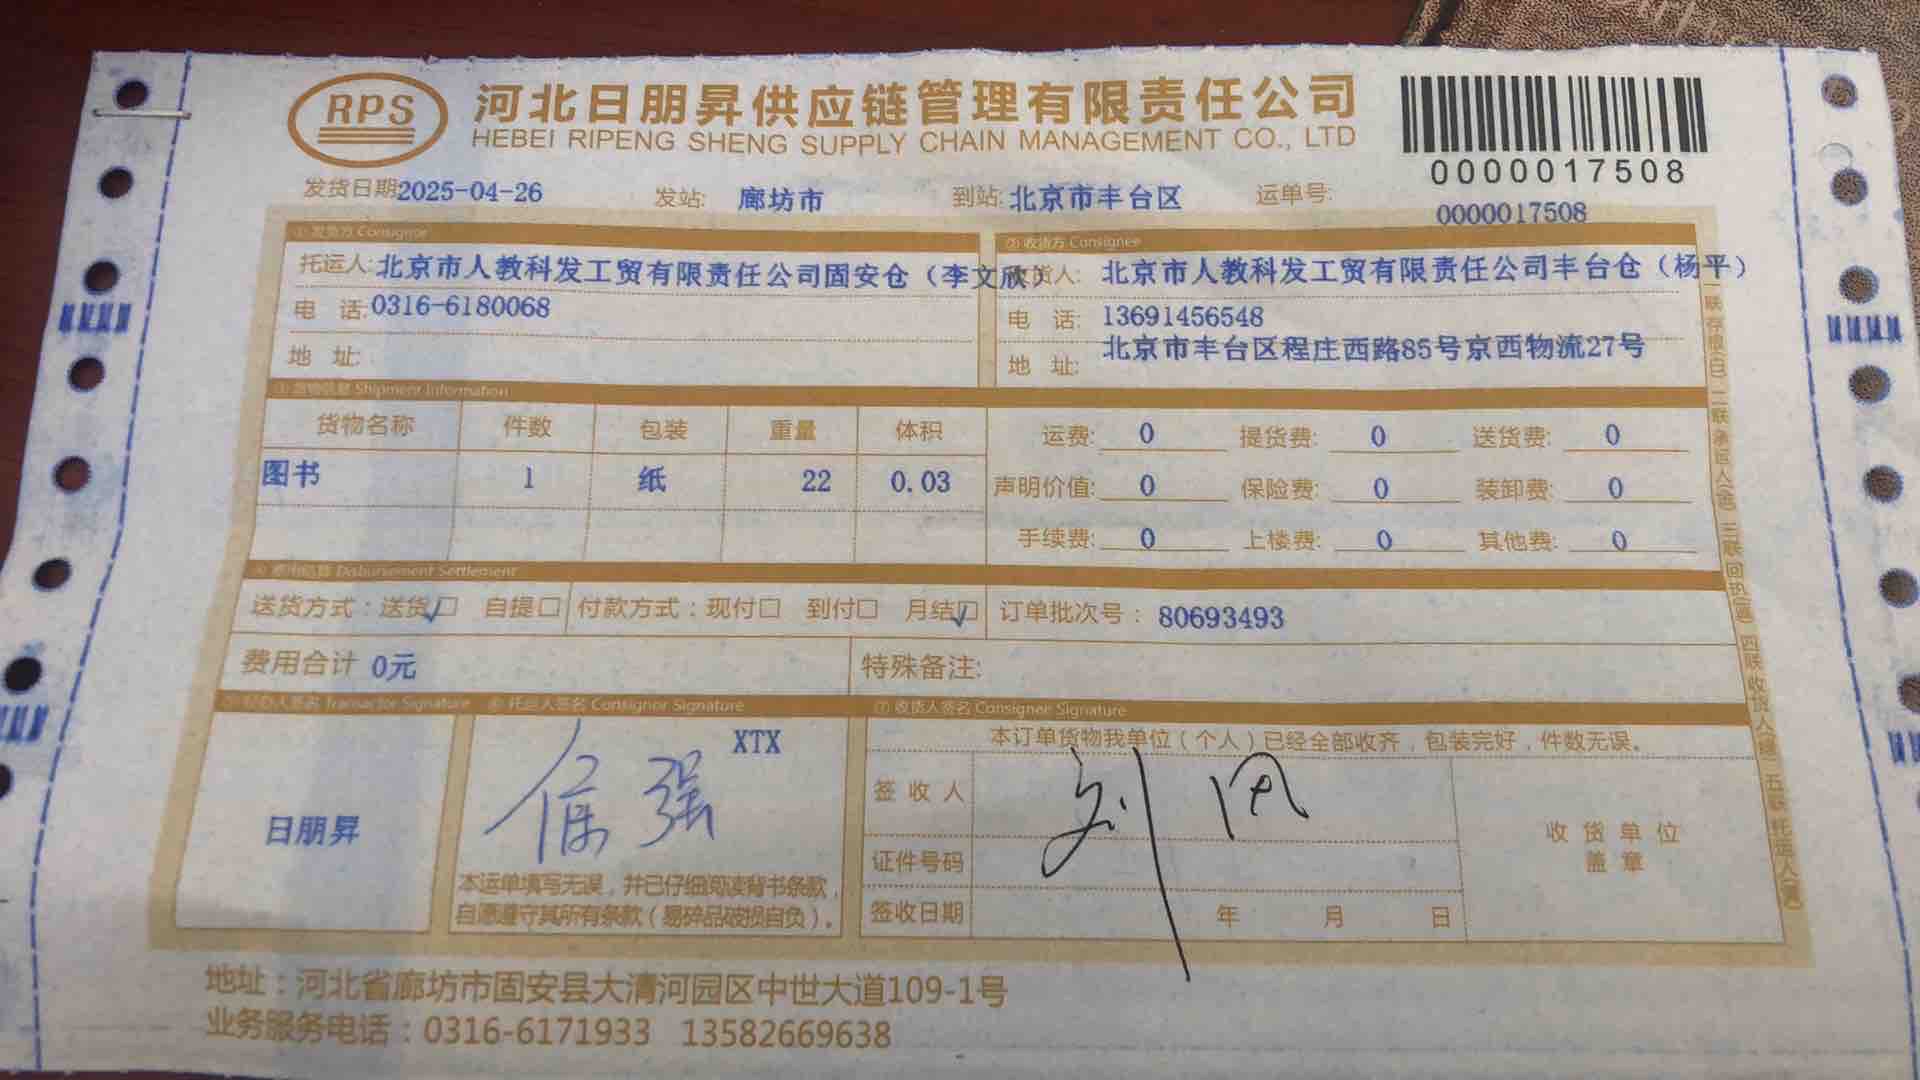 RPS
河北日朋昇供应链管理有限责任公司
HEBEI RIPENG SHENG SUPPLY CHAIN MANAGEMENT CO., LTD
0000017508
发货日期 2025-04-26 发站: 廊坊市 到站: 北京市丰台区 运单号: 0000017508
① 发货方 Consignor ② 收货方 Consignee
托运人: 北京市人教科发工贸有限责任公司固安仓（李文欣） 货人: 北京市人教科发工贸有限责任公司丰台仓（杨平）
电 话: 0316-6180068 电 话: 13691456548
地 址: 地 址: 北京市丰台区程庄西路85号京西物流27号
③ 货物信息 Shipment Information
货物名称 件数 包装 重量 体积 运费: 0 提货费: 0 送货费: 0
图书 1 纸 22 0.03 声明价值: 0 保险费: 0 装卸费: 0
手续费: 0 上楼费: 0 其他费: 0
④ 费用结算 Disbursement Settlement
送货方式：送货☑ 自提□ 付款方式：现付□ 到付□ 月结☑ 订单批次号： 80693493
费用合计 0元 特殊备注:
⑤ 经办人签名 Transactor Signature ⑥ 托运人签名 Consignor Signature ⑦ 收货人签名 Consignee Signature
XTX
本订单货物我单位（个人）已经全部收齐，包装完好，件数无误。
日朋昇
强
签 收 人 刘
证件号码
收 货 单 位
盖 章
本运单填写无误，并已仔细阅读背书条款，
自愿遵守其所有条款（易碎品破损自负）。
签收日期 年 月 日
地址：河北省廊坊市固安县大清河园区中世大道109-1号
业务服务电话：0316-6171933 13582669638